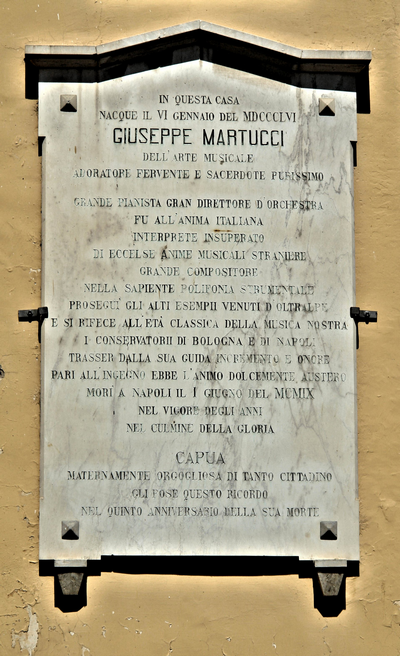 IN QUESTA CASA
NACQUE IL VI GENNAIO DEL MDCCCLVI
GIUSEPPE MARTUCCI
DELL'ARTE MUSICALE
ADORATORE FERVENTE E SACERDOTE PURISSIMO
GRANDE PIANISTA GRAN DIRETTORE D'ORCHESTRA
FU ALL'ANIMA ITALIANA
INTERPRETE INSUPERATO
DI ECCELSE ANIME MUSICALI STRANIERE
GRANDE COMPOSITORE
NELLA SAPIENTE POLIFONIA STRUMENTALE
PROSEGUI' GLI ALTI ESEMPII VENUTI D'OLTRALPE
E SI RIFECE ALL'ETÁ CLASSICA DELLA MUSICA NOSTRA
I CONSERVATORII DI BOLOGNA E DI NAPOLI
TRASSER DALLA SUA GUIDA INCREMENTO E ONORE
PARI ALL'INGEGNO EBBE L'ANIMO DOLCEMENTE AUSTERO
MORÌ A NAPOLI IL I GIUGNO DEL MCMIX
NEL VIGORE DEGLI ANNI
NEL CULMINE DELLA GLORIA
CAPUA
MATERNAMENTE ORGOGLIOSA DI TANTO CITTADINO
GLI POSE QUESTO RICORDO
NEL QUINTO ANNIVERSARIO DELLA SUA MORTE